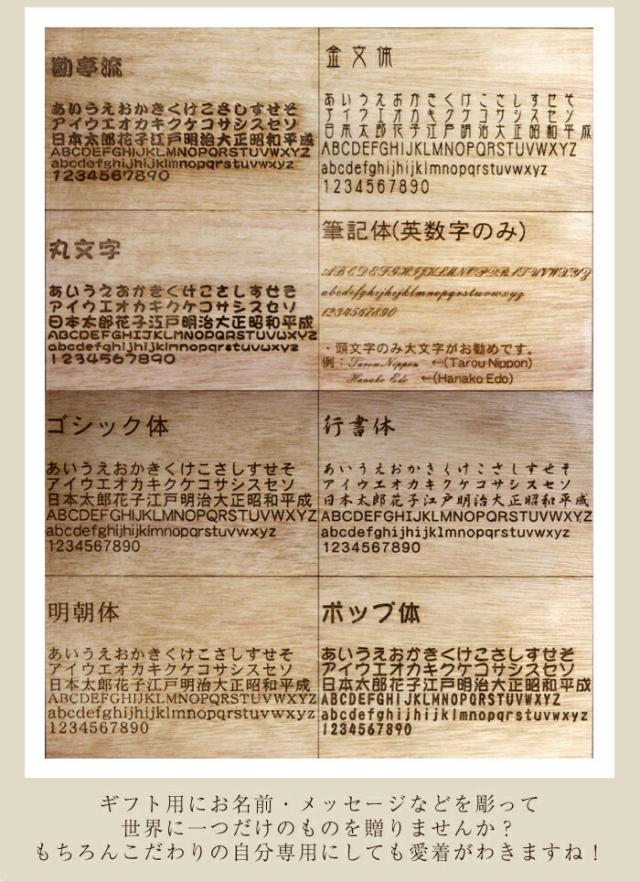 勘亭流
あいうえおかきくけこさしすせそ
アイウエオカキクケコサシスセソ
日本太郎花子江戸明治大正昭和平成
ABCDEFGHIJKLMNOPQRSTUVWXYZ
abcdefghijhijklmnopqrstuvwxyz
1234567890
金文体
あいうえおかきくけこさしすせそ
アイウエオカキクケコサシスセソ
日本太郎花子江戸明治大正昭和平成
ABCDEFGHIJKLMNOPQRSTUVWXYZ
abcdefghijhijklmnopqrstuvwxyz
1234567890
丸文字
あいうえおかきくけこさしすせそ
アイウエオカキクケコサシスセソ
日本太郎花子江戸明治大正昭和平成
ABCDEFGHIJKLMNOPQRSTUVWXYZ
abcdefghijhijklmnopqrstuvwxyz
1234567890
筆記体(英数字のみ)
ABCDEFGHIJKLMNOPQRSTUVWXYZ
abcdefghijhijklmnopqrstuvwxyz
1234567890
・頭文字のみ大文字がお勧めです。
例：Tarou Nippon ←(Tarou Nippon)
Hanako Edo ←(Hanako Edo)
ゴシック体
あいうえおかきくけこさしすせそ
アイウエオカキクケコサシスセソ
日本太郎花子江戸明治大正昭和平成
ABCDEFGHIJKLMNOPQRSTUVWXYZ
abcdefghijhijklmnopqrstuvwxyz
1234567890
行書体
あいうえおかきくけこさしすせそ
アイウエオカキクケコサシスセソ
日本太郎花子江戸明治大正昭和平成
ABCDEFGHIJKLMNOPQRSTUVWXYZ
abcdefghijhijklmnopqrstuvwxyz
1234567890
明朝体
あいうえおかきくけこさしすせそ
アイウエオカキクケコサシスセソ
日本太郎花子江戸明治大正昭和平成
ABCDEFGHIJKLMNOPQRSTUVWXYZ
abcdefghijhijklmnopqrstuvwxyz
1234567890
ポップ体
あいうえおかきくけこさしすせそ
アイウエオカキクケコサシスセソ
日本太郎花子江戸明治大正昭和平成
ABCDEFGHIJKLMNOPQRSTUVWXYZ
abcdefghijhijklmnopqrstuvwxyz
1234567890
ギフト用にお名前・メッセージなどを彫って
世界に一つだけのものを贈りませんか？
もちろんこだわりの自分専用にしても愛着がわきますね！